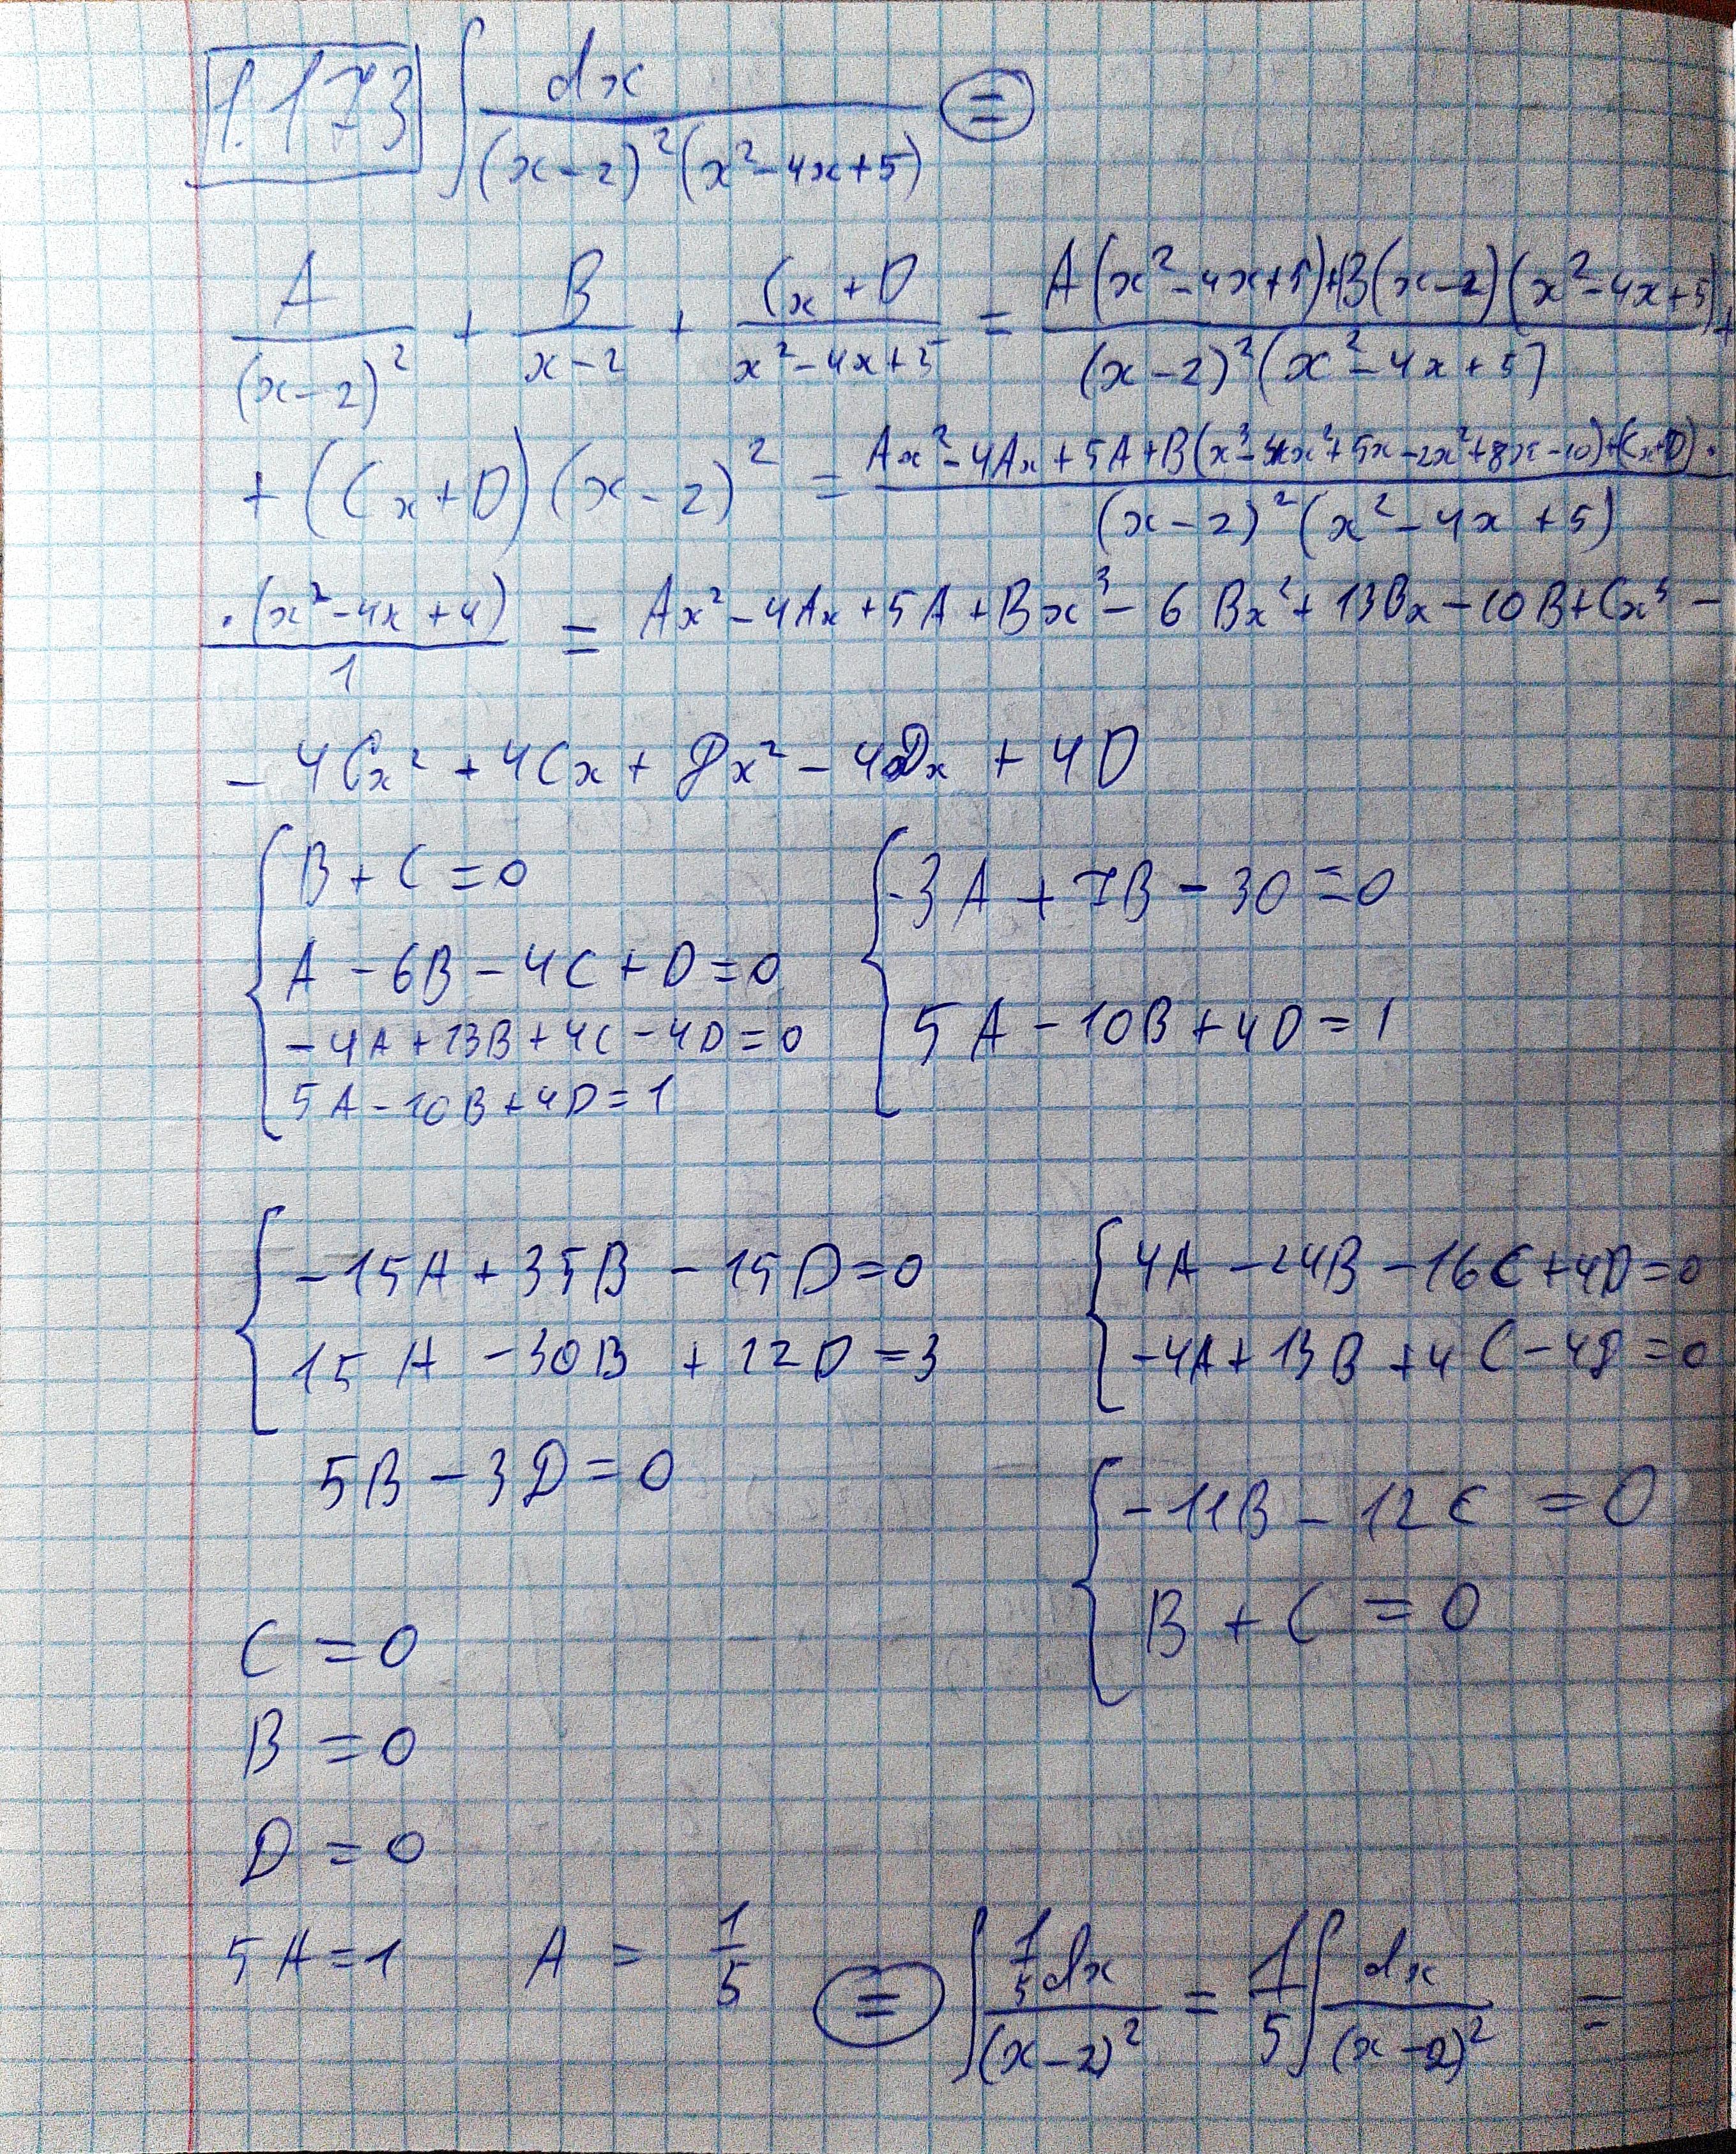 1.173 ∫ dx / ((x-2)²(x²-4x+5)) =
A/(x-2)² + B/(x-2) + (Cx+D)/(x²-4x+5) = (A(x²-4x+5)+B(x-2)(x²-4x+5))/((x-2)²(x²-4x+5)) +
+ (Cx+D)(x-2)² = (Ax²-4Ax+5A+B(x³-4x²+5x-2x²+8x-10)+(Cx+D)·)/((x-2)²(x²-4x+5))
·(x²-4x+4)/1 = Ax²-4Ax+5A+Bx³-6Bx²+13Bx-10B+Cx³-
-4Cx²+4Cx+Dx²-4Dx+4D
{ B+C=0
A-6B-4C+D=0
-4A+13B+4C-4D=0
5A-10B+4D=1
{ -3A+7B-3D=0
5A-10B+4D=1
{ -15A+35B-15D=0
15A-30B+12D=3
5B-3D=0
{ 4A-24B-16C+4D=0
-4A+13B+4C-4D=0
{ -11B-12C=0
B+C=0
C=0
B=0
D=0
5A=1 A=1/5 = ∫ (1/5 dx)/(x-2)² = 1/5 ∫ dx/(x-2)² =